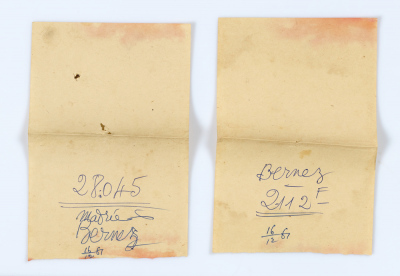 28.045
Bernez
16/12 61
Bernez
2112F
16/12 61